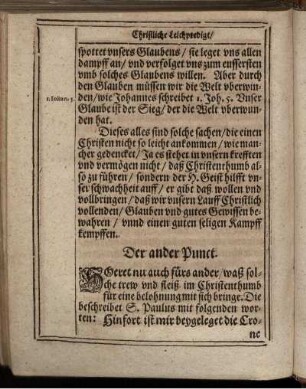 Christliche Leichpredigt/
spottet vnsers Glaubens/ sie leget vns allen
dampff an/ vnd verfolget vns zum eussersten
vmb solches Glaubens willen. Aber durch
den Glauben müssen wir die Welt vberwun-
1. Johan. 5.
den/ wie Johannes schreibet 1. Joh. 5. Vnser
Glaube ist der Sieg/ der die Welt vberwun-
den hat.
Dieses alles sind solche sachen/ die einen
Christen nicht so leicht ankommen/ wie man-
cher gedencket/ Ja es stehet in vnsern krefften
vnd vermögen nicht/ daß Christenthumb al-
so zu führen/ sondern der H. Geist hilfft vn-
ser schwachheit auff/ er gibt daß wollen vnd
vollbringen/ daß wir vnsern Lauff Christlich
vollenden/ Glauben vnd gutes Gewissen be-
wahren/ vnnd einen guten seligen Kampff
kempffen.
Der ander Punct.
HOeret nu auch fürs ander/ waß sol-
che trew vnd fleiß im Christenthumb
für eine belohnung mit sich bringe. Die
beschreibet S. Paulus mit folgenden wor-
ten: Hinfort ist mir beygeleget die Cro-
ne